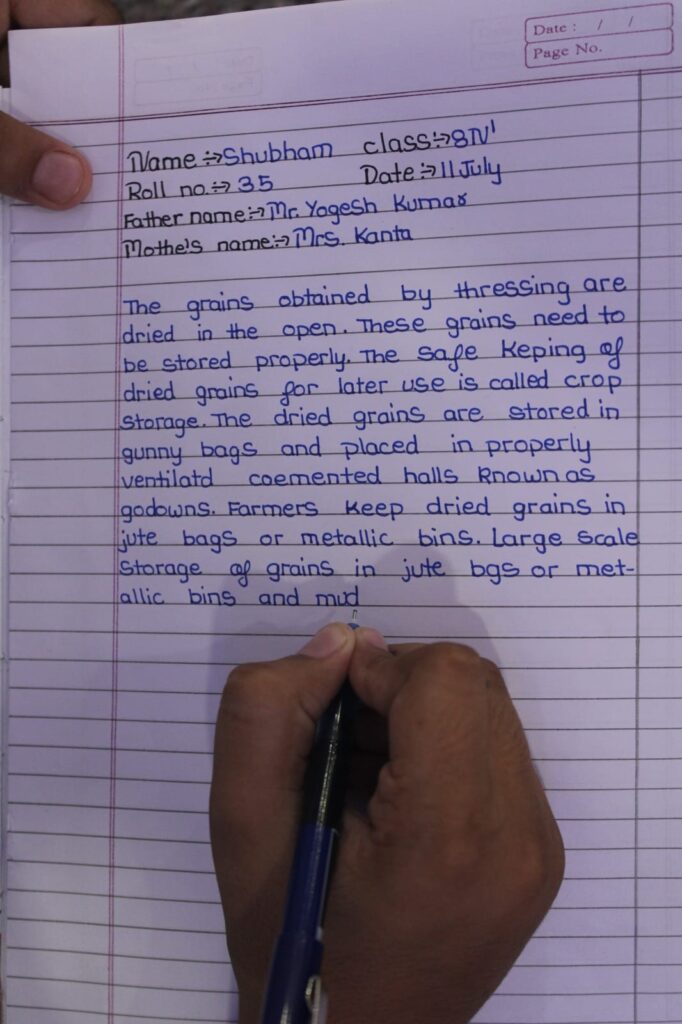 Date : / /
Page No.
Name :→ Shubham class :→ 8 IV'
Roll no. :→ 35 Date :→ 11 July
Father name :→ Mr. Yogesh Kumar
Mothe's name :→ Mrs. Kanta
The grains obtained by thressing are
dried in the open. These grains need to
be stored properly. The safe Keping of
dried grains for later use is called crop
storage. The dried grains are stored in
gunny bags and placed in properly
ventilatd coemented halls Known as
godowns. Farmers Keep dried grains in
jute bags or metallic bins. Large scale
storage of grains in jute bgs or met-
allic bins and mud